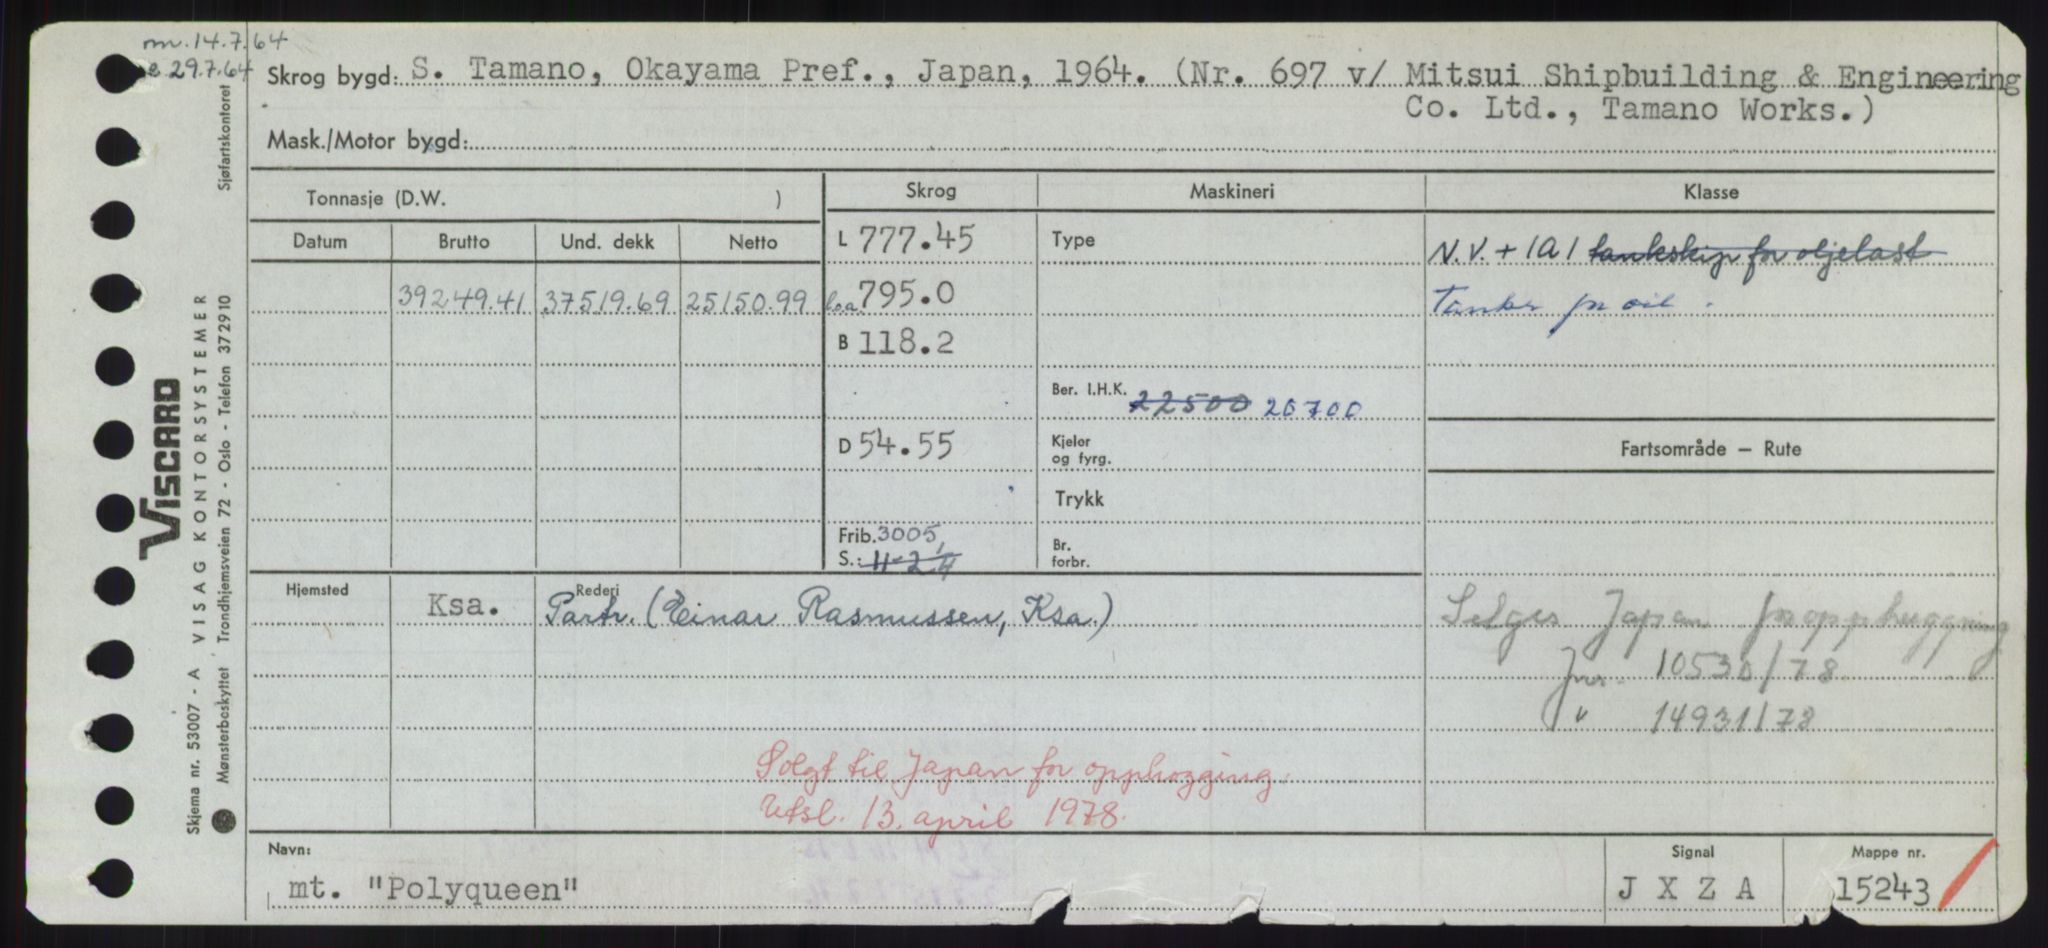 m. 14.7.64
e 29.7.64
Skrog bygd: S. Tamano, Okayama Pref., Japan, 1964. (Nr. 697 v/ Mitsui Shipbuilding & Engineering
Co. Ltd., Tamano Works.)
Mask./Motor bygd:
Tonnasje (D.W. )
Skrog
Maskineri
Klasse
Datum Brutto Und. dekk Netto
L 777.45
Type
N.V. + 1A1 tankskip for oljelast
39249.41 37519.69 25150.99
loa. 795.0
Tanker for oil.
B 118.2
Ber. I.H.K. 22500 20700
D 54.55
Kjeler
og fyrg.
Fartsområde – Rute
Trykk
Frib. 3005,
S.: 11-2 4
Br.
forbr.
Hjemsted
Rederi
Ksa.
Partr. (Einar Rasmussen, Ksa.)
Selges Japan for opphugging
Jnr. 10530/78
" 14931/78
Solgt til Japan for opphogging.
Utsl. 13. april 1978.
Navn:
mt. "Polyqueen"
Signal
J X Z A
Mappe nr.
15243
Viscard
Skjema nr. 53007 - A VISAG KONTORSYSTEMER
Mønsterbeskyttet Trondhjemsveien 72 - Oslo - Telefon 372910
Sjøfartskontoret